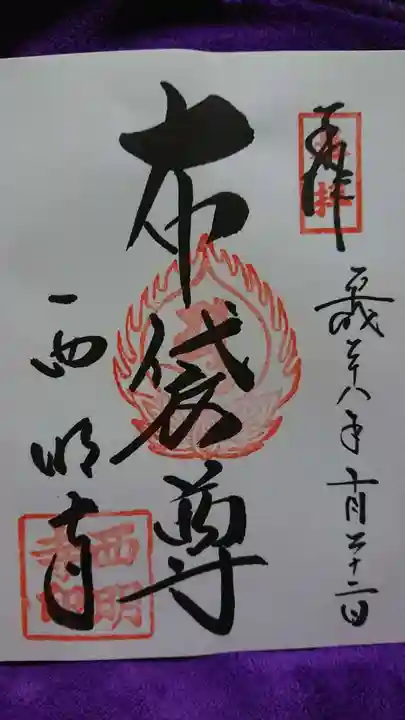 奉拝
平成二十八年十一月二十二日
布袋尊
西明寺
西明寺印